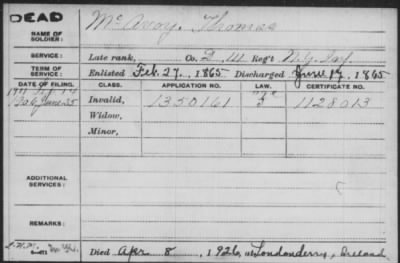 DEAD
NAME OF SOLDIER: McAvoy, Thomas
SERVICE: Late rank, Co. D, 111 Reg't N.Y. Inf.
TERM OF SERVICE: Enlisted Feb. 27, 1865 Discharged June 17, 1865
DATE OF FILING. CLASS. APPLICATION NO. LAW. CERTIFICATE NO.
Invalid, 1350161 1128013
Widow,
Minor,
ADDITIONAL SERVICES:
REMARKS:
Died Apr 8, 1926, at Londonderry, Ireland